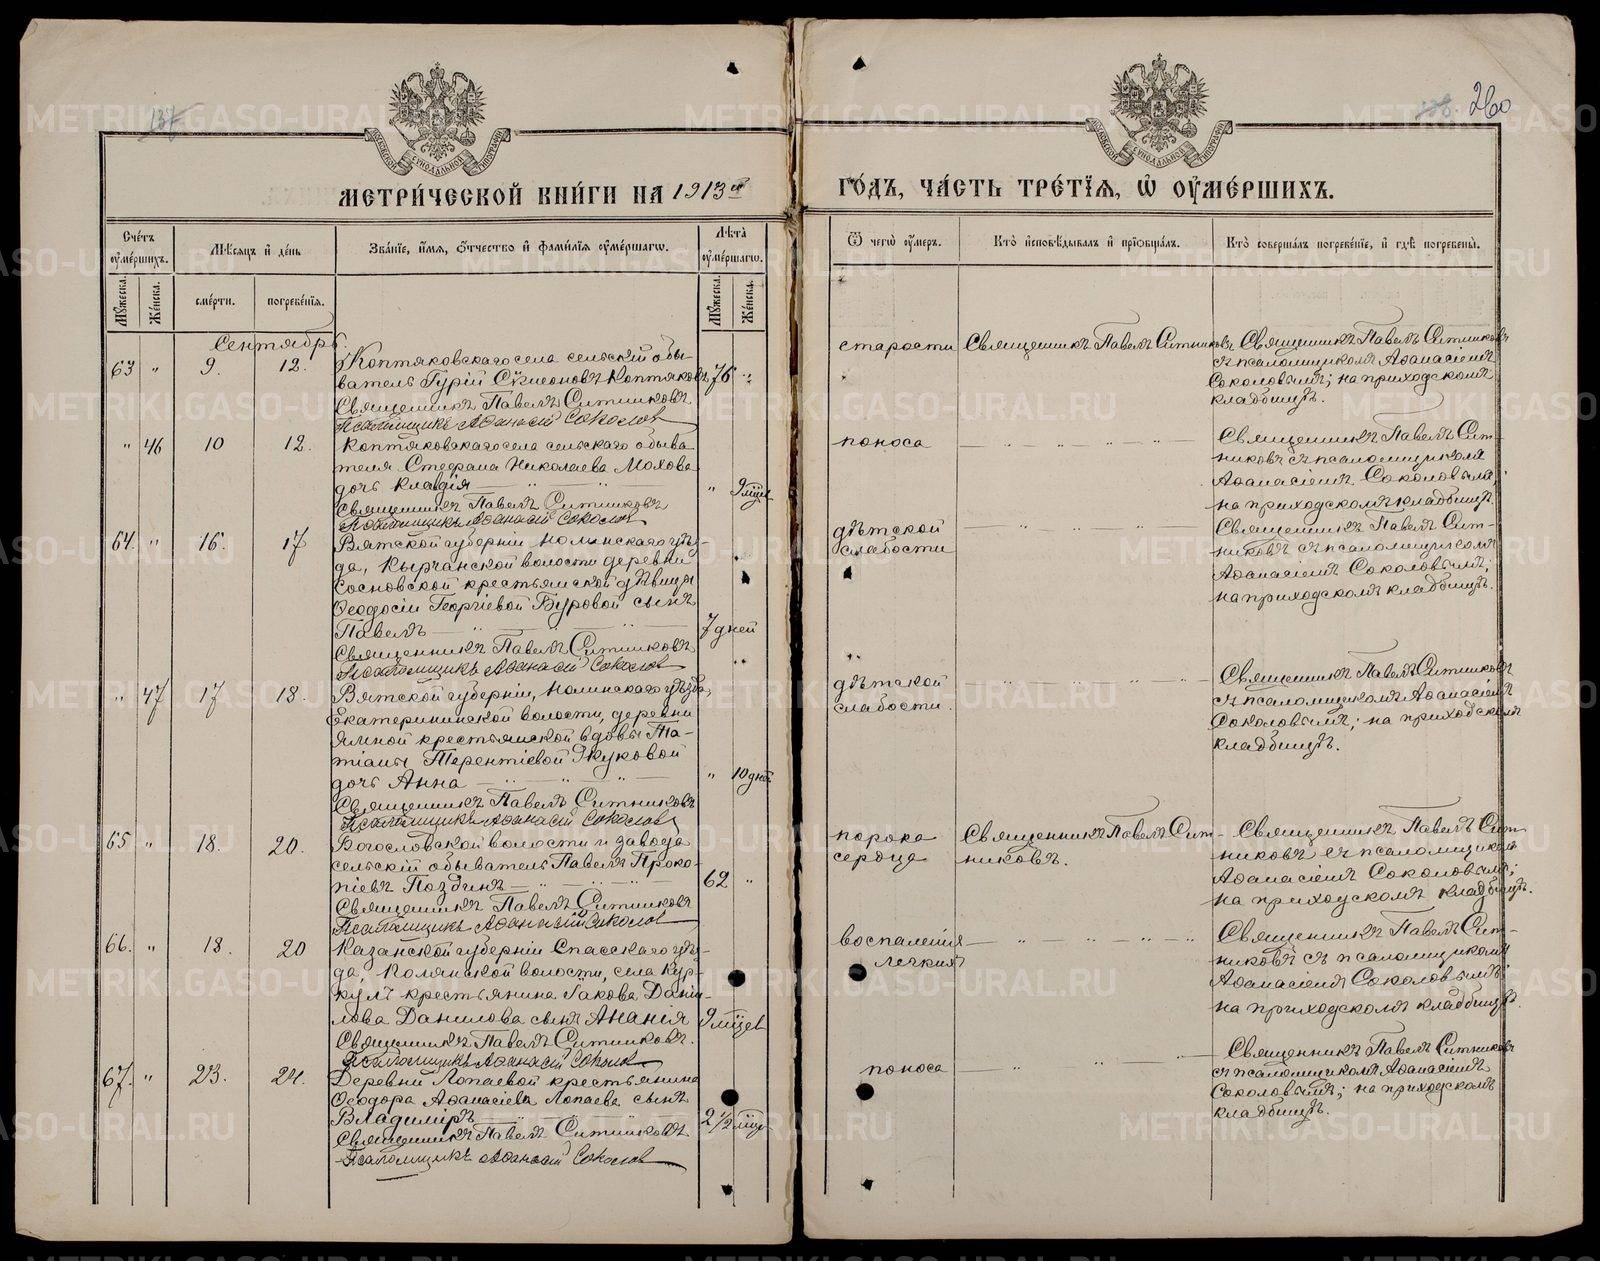 137
138. 260
МЕТРИЧЕСКОЙ КНИГИ НА 1913й
ГОДЪ, ЧАСТЬ ТРЕТІЯ, Ѿ ОУМЕРШИХЪ.
Счетъ оумершихъ.
Мѣсяцъ и день
Званіе, имя, отчество и фамилія оумершагѡ.
Лѣта оумершагѡ.
Ѿ чегѡ оумеръ.
Кто исповѣдывалъ и пріобщалъ.
Кто совершалъ погребеніе, и гдѣ погребены.
Мужеска. Женска.
смерти. погребенія.
Мужеска. Женска.
Сентябрь.
63 " 9. 12. Коптяковскаго села сельскій обы-
ватель Гурій Сѵмеоновъ Коптяковъ 76 "
Священникъ Павелъ Ситниковъ
Псаломщикъ Аѳанасій Соколов
старости
Священникъ Павелъ Ситниковъ
Священникъ Павелъ Ситниковъ
съ псаломщикомъ Аѳанасіемъ
Соколовымъ; на приходскомъ
кладбищѣ.
" 46 10 12. Коптяковскаго села сельскаго обыва
теля Стефана Николаева Мохова
дочь Клавдія " 9 мѣцев
Священникъ Павелъ Ситниковъ
Псаломщикъ Аѳанасій Соколов
поноса
Священникъ Павелъ Сит-
никовъ съ псаломщикомъ
Аѳанасіемъ Соколовымъ;
на приходскомъ кладбищѣ.
64. " 16. 17 Вятской губерніи Нолинскаго уѣз-
да, Кырчанской волости деревни
Сосновской крестьянской дѣвицы
Ѳеодосіи Георгіевой Буровой сынъ
Павелъ 7 дней
Священникъ Павелъ Ситниковъ
Псаломщикъ Аѳанасій Соколов
дѣтской
слабости
Священникъ Павелъ Сит-
никовъ съ псаломщикомъ
Аѳанасіемъ Соколовымъ;
на приходскомъ кладбищѣ.
" 47 17 18. Вятской губерніи, Нолинскаго уѣзда,
Екатерининской волости, деревни
Ямной крестьянской вдовы Та-
тіаны Терентіевой Жуковой
дочь Анна " 10 дней
Священникъ Павелъ Ситниковъ
Псаломщикъ Аѳанасій Соколов
дѣтской
слабости.
Священникъ Павелъ Ситниковъ
съ псаломщикомъ Аѳанасіемъ
Соколовымъ; на приходскомъ
кладбищѣ.
65 " 18. 20. Богословской волости и завода
сельскій обыватель Павелъ Проко-
піевъ Поздинъ 62 "
Священникъ Павелъ Ситниковъ
Псаломщикъ Аѳанасій Соколов
порока
сердца
Священникъ Павелъ Сит-
никовъ.
Священникъ Павелъ Сит-
никовъ съ псаломщикомъ
Аѳанасіемъ Соколовымъ;
на приходскомъ кладбищѣ.
66. " 18. 20 Казанской губерніи Спасскаго уѣз-
да, волости, села Кур-
кулъ крестьянина Іакова Даніи-
лова Данилова сынъ Ананія 9 мѣцев
Священникъ Павелъ Ситниковъ.
Псаломщикъ Аѳанасій Соколов
воспаленія
легкихъ
Священникъ Павелъ Сит-
никовъ съ псаломщикомъ
Аѳанасіемъ Соколовымъ;
на приходскомъ кладбищѣ.
67. " 23. 24. Деревни Лопаевой крестьянина
Ѳеодора Аѳанасіева Лопаева сынъ
Владиміръ 2 1/2 мѣц
Священникъ Павелъ Ситниковъ
Псаломщикъ Аѳанасій Соколов
поноса
Священникъ Павелъ Ситниковъ
съ псаломщикомъ Аѳанасіемъ
Соколовымъ; на приходскомъ
кладбищѣ.
METRIKI.GASO-URAL.RU